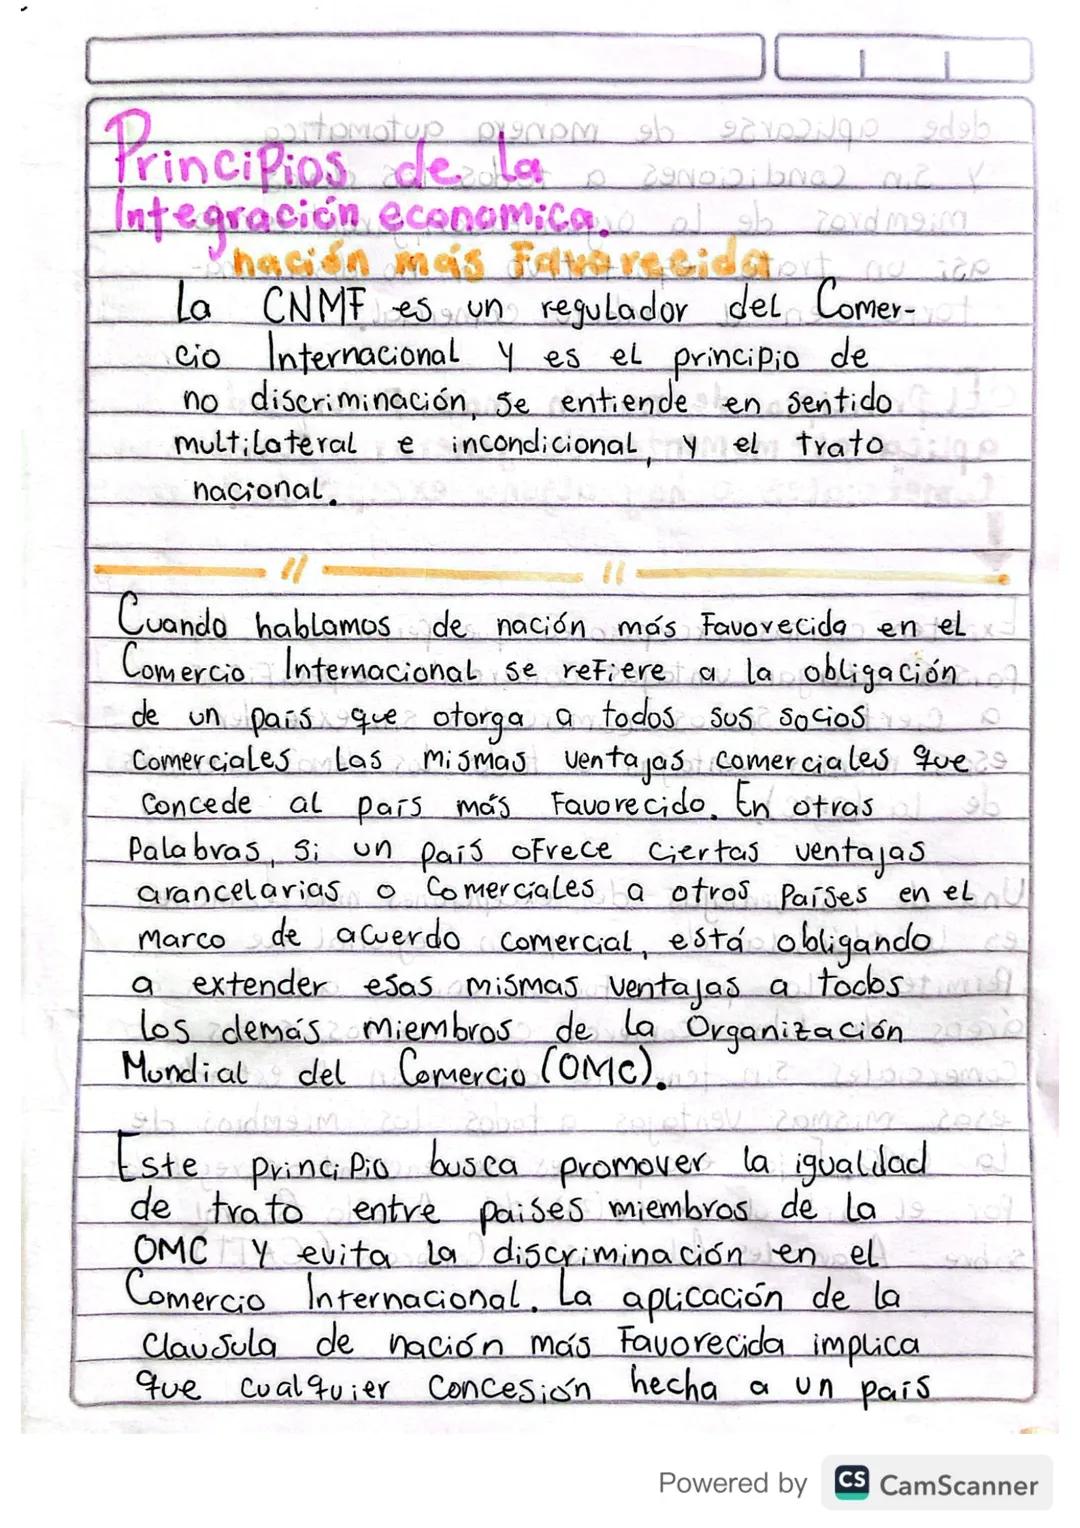 Principios de la
Integración economica.
nación más Favorecida
La CNMF es un regulador del Comer-
cio Internacional y es el principio de
no discriminación, se entiende en sentido
multilateral e incondicional, y el trato
nacional.
Cuando hablamos de nación más Favorecida en el
Comercio Internacional se refiere a la obligación
de un país que otorga a todos sus socios
comerciales las mismas ventajas comerciales que
concede al país más Favorecido. En otras
Palabras, si un país ofrece ciertas ventajas
arancelarias o Comerciales a otros Países en el
marco de acuerdo comercial, está obligando
a extender esas mismas ventajas a todos
los demás miembros de la Organización
Mundial del Comercio (OMC).
Este principio busca promover la igualdad
de trato entre paises miembros de la
OMC Y evita la discriminación en el
Comercio Internacional. La aplicación de la
Clausula de nación más Favorecida implica
que cualquier concesión hecha a un país
Powered by CS CamScanner